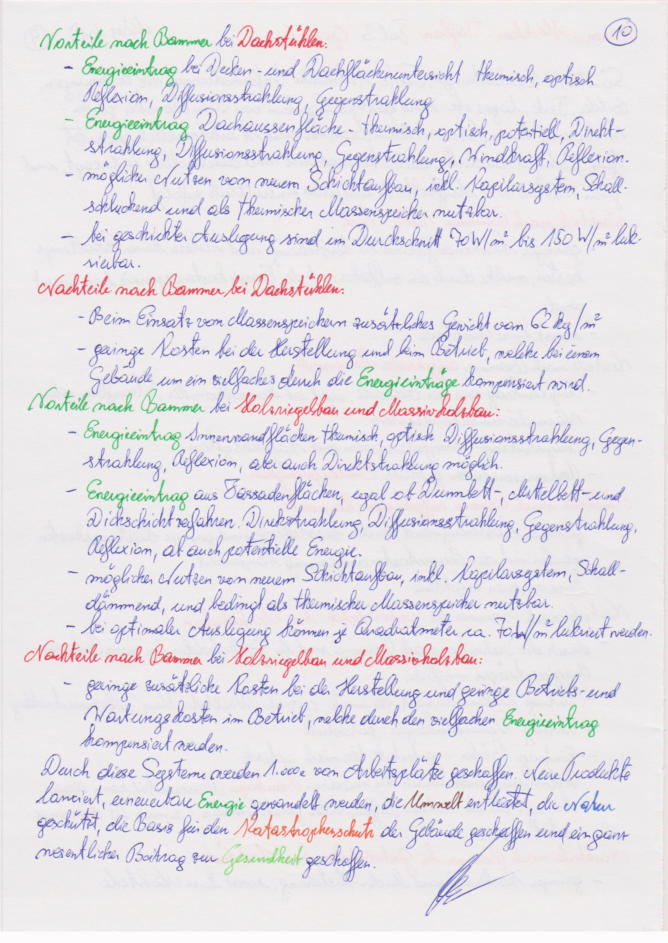 10
Vorteile nach Bammer bei Dachstühlen:
- Energieeintrag bei Decken- und Dachflächenuntersicht thermisch, optisch
Reflexion, Diffusionsstrahlung, Gegenstrahlung
- Energieeintrag Dachaussenfläche - thermisch, optisch, potentiell, Direkt-
strahlung, Diffusionsstrahlung, Gegenstrahlung, Windkraft, Reflexion.
- möglicher Nutzen von neuem Schichtaufbau, inkl. Kapilarsystem, Schall-
schluckend und als thermischer Massenspeicher nutzbar.
- bei geschickter Auslegung sind im Durckschnitt 70 W/m² bis 150 W/m² luk-
rierbar.
Nachteile nach Bammer bei Dachstühlen:
- Beim Einsatz von Massenspeichern zusätzliches Gewicht von 62 kg/m²
- geringe Kosten bei der Herstellung und beim Betrieb, welche bei einem
Gebäude um ein vielfaches durch die Energieeinträge kompensiert wird.
Vorteile nach Bammer bei Holzriegelbau und Massivholzbau:
- Energieeintrag Innenwandflächen thermisch, optisch Diffusionsstrahlung, Gegen-
strahlung, Reflexion, aber auch Direktstrahlung möglich.
- Energieeintrag aus Fassadenflächen, egal ob Dünnbett-, Mittelbett- und
Dickschichtverfahren. Direkstrahlung, Diffusionsstrahlung, Gegenstrahlung,
Reflexion, ab auch potentielle Energie.
- möglicher Nutzen von neuem Schichtaufbau, inkl. Kapilarsystem, Schall-
dämmend, und bedingt als thermischer Massenspeicher nutzbar.
- bei optimaler Auslegung können je Quadratmeter ca. 70 W/m² lukriert werden.
Nachteile nach Bammer bei Holzriegelbau und Massivholzbau:
- geringe zusätzliche Kosten bei der Herstellung und geringe Betriebs- und
Wartungskosten im Betrieb, welche durch den vielfachen Energieeintrag
kompensiert werden.
Durch diese Systeme werden 1.000e von Arbeitsplätze geschaffen. Neue Produkte
lanciert, erneuerbare Energie gewandelt werden, die Umwelt entlastet, die Natur
geschützt, die Basis für den Katastrophenschutz der Gebäude geschaffen und ein ganz
wesentlicher Beitrag zur Gesundheit geschaffen.